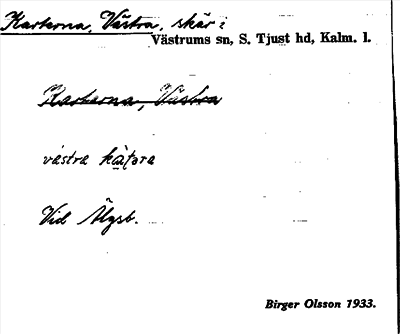 Karterna, Västra, skär i
Västrums sn, S. Tjust hd, Kalm. l.
Karterna, Västra
västra
Vid Älgsb.
Birger Olsson 1933.